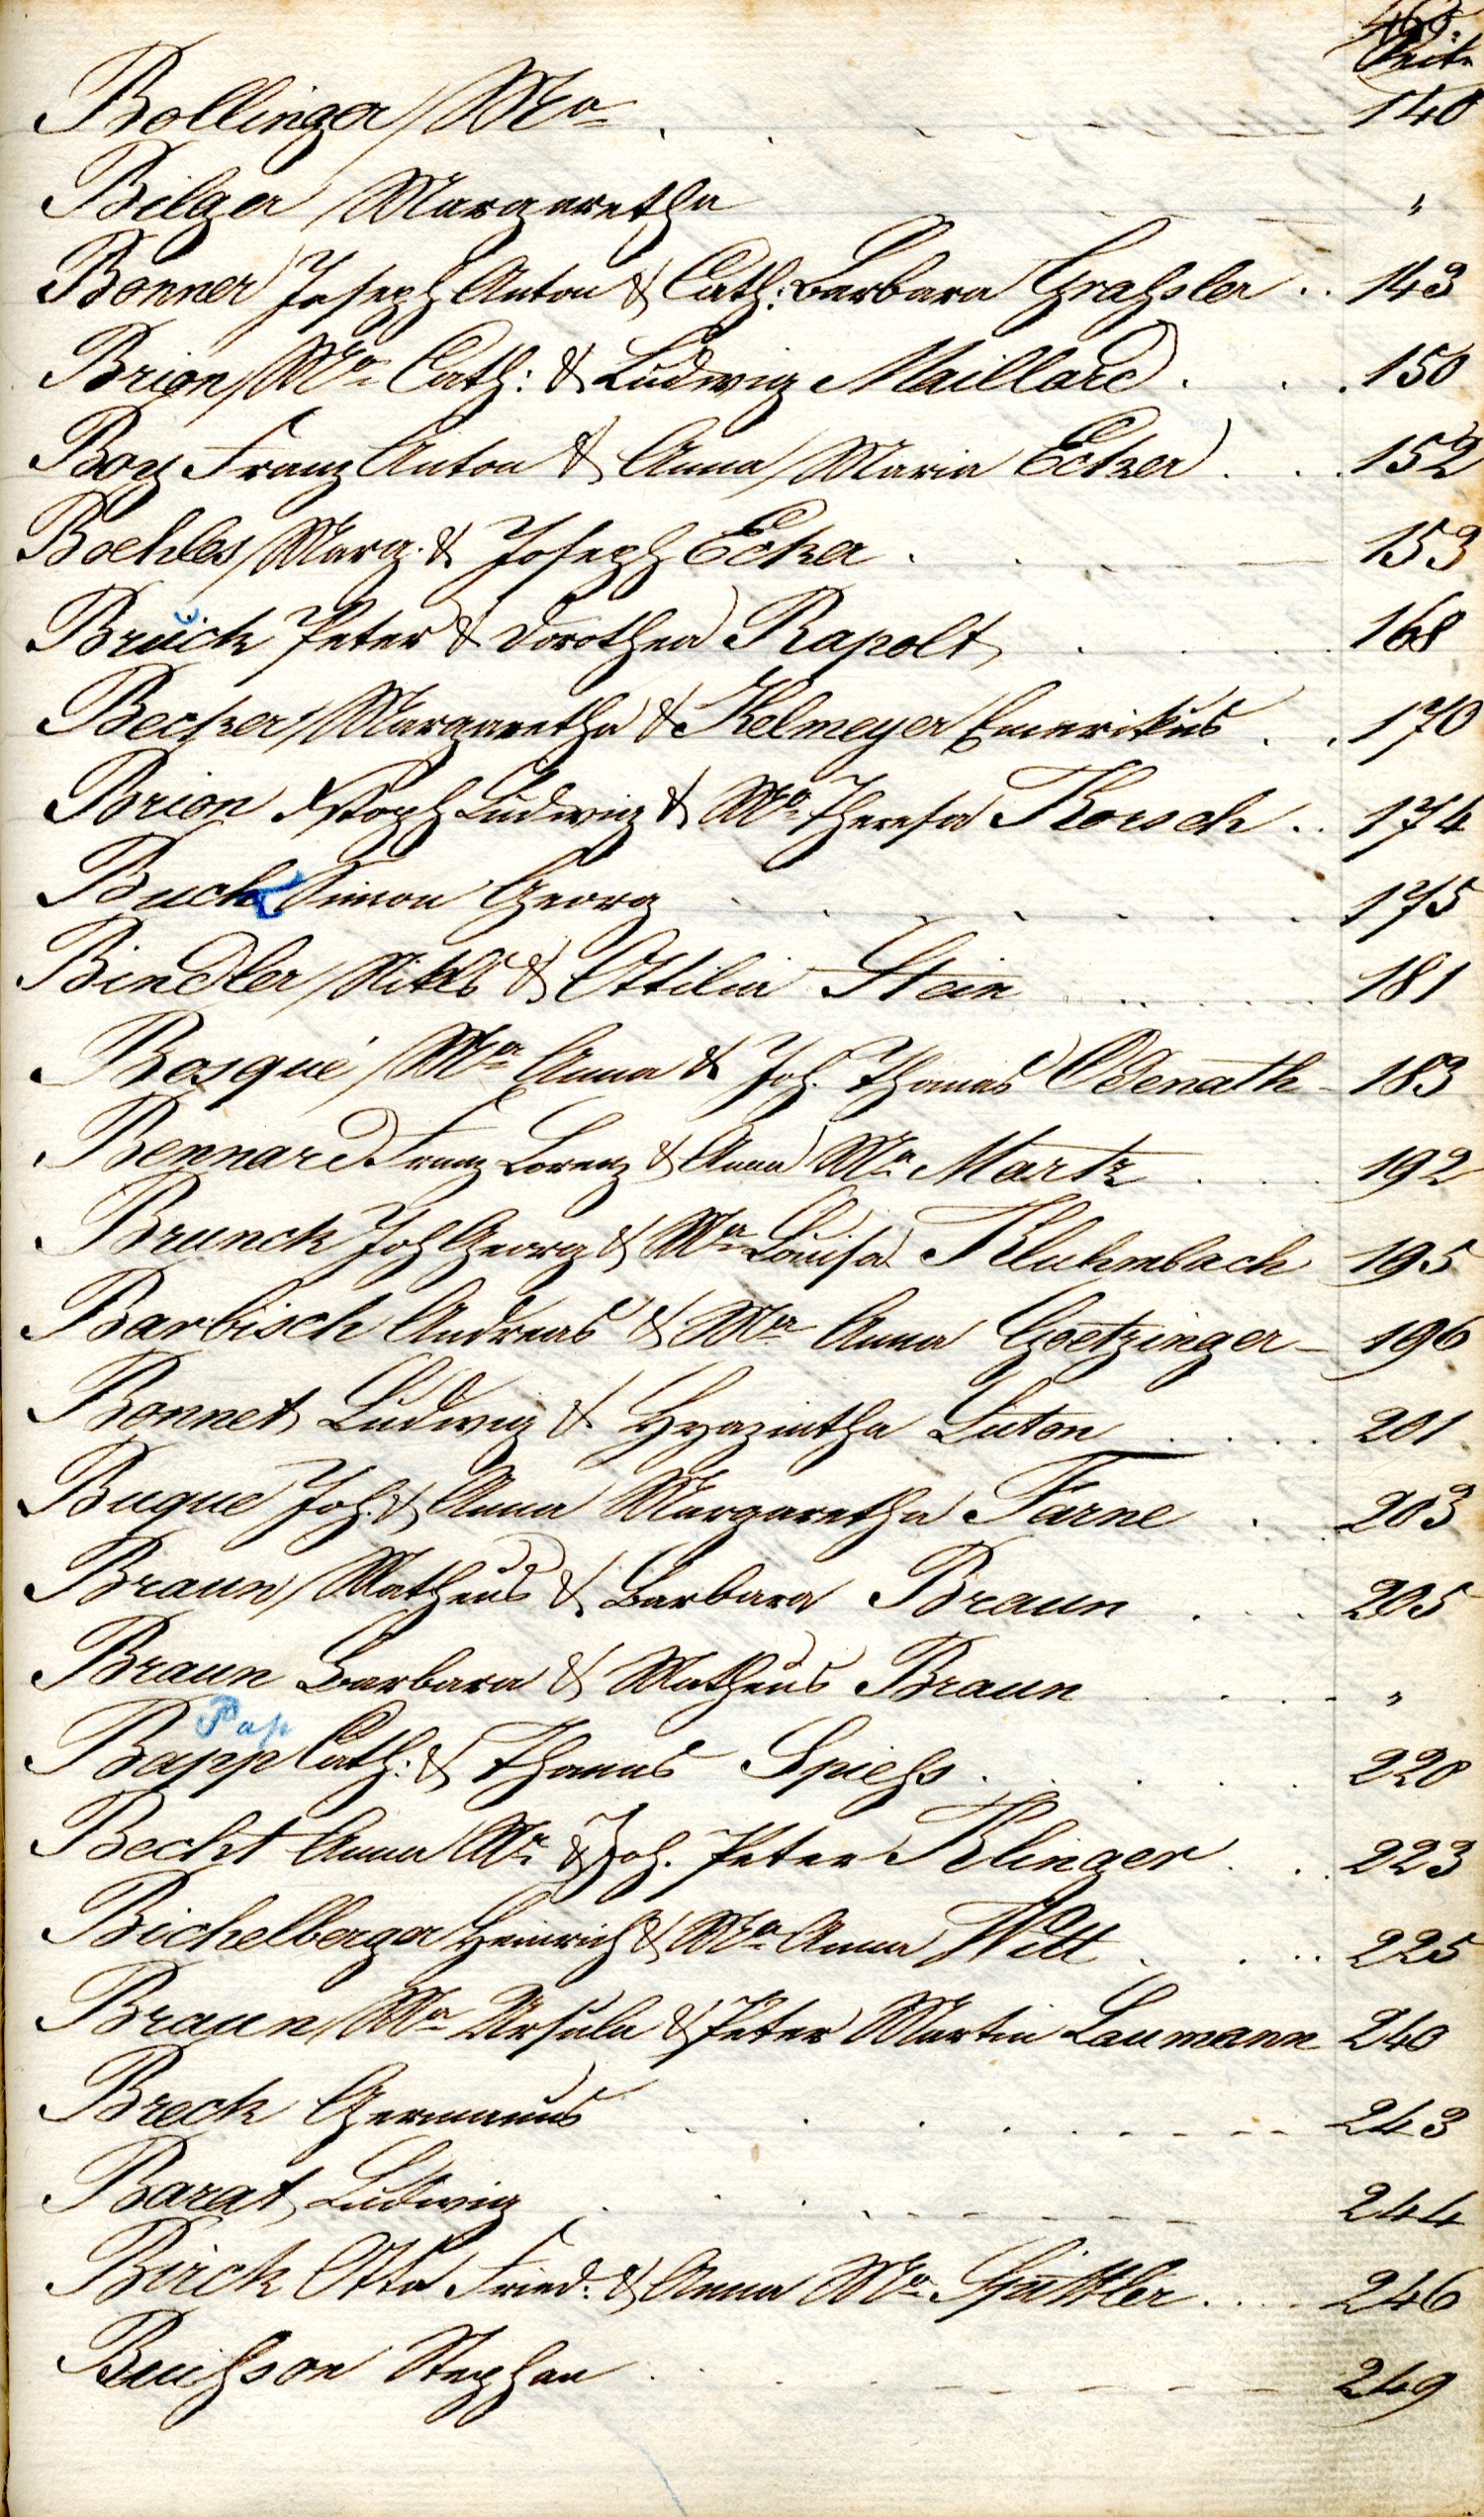 Seite
Bollinger Mª 140
Bilger Margaretha "
Bonner Joseph Anton & Cath: Barbara Grahsler 143
Brion Mª Cath: & Ludwig Maillard 150
Boy Franz Anton & Anna Maria Ecker 152
Boehles Marg. & Joseph Ecker 153
Bruck Peter & Dorothea Rapolt 168
Becker Margaretha & Kelmeyer Emerikus 170
Brion Ludwig & Mª Theresa Korsch 174
Buch Simon Georg 175
Bindler Nikls & Ottilia Stein 181
Bosqué Mª Anna & Joh. Thomas Odenath 183
Bennard Franz Lorenz & Anna Mª Martz 192
Brunck Joh Georg & Mª Louisa Kluhmbach 195
Barbisch Andreas & Mª Anna Goetzinger 196
Bonnet Ludwig & Hyazintha Luton 201
Buque Joh. & Anna Margaretha Farne 203
Braun Matheus & Barbara Braun 205
Braun Barbara & Matheus Braun "
Pap
Bapp Cath: & Thomas Spiehs 220
Becht Anna Mª & Joh. Peter Klinger 223
Bichelberger Heinrich & Mª Anna Witt 225
Braun Mª Ursula & Peter Martin Laumann 240
Breck Germanus 243
Barat Ludwig 244
Birck Otto Fried: & Anna Mª 246
Buihson Stephan 249